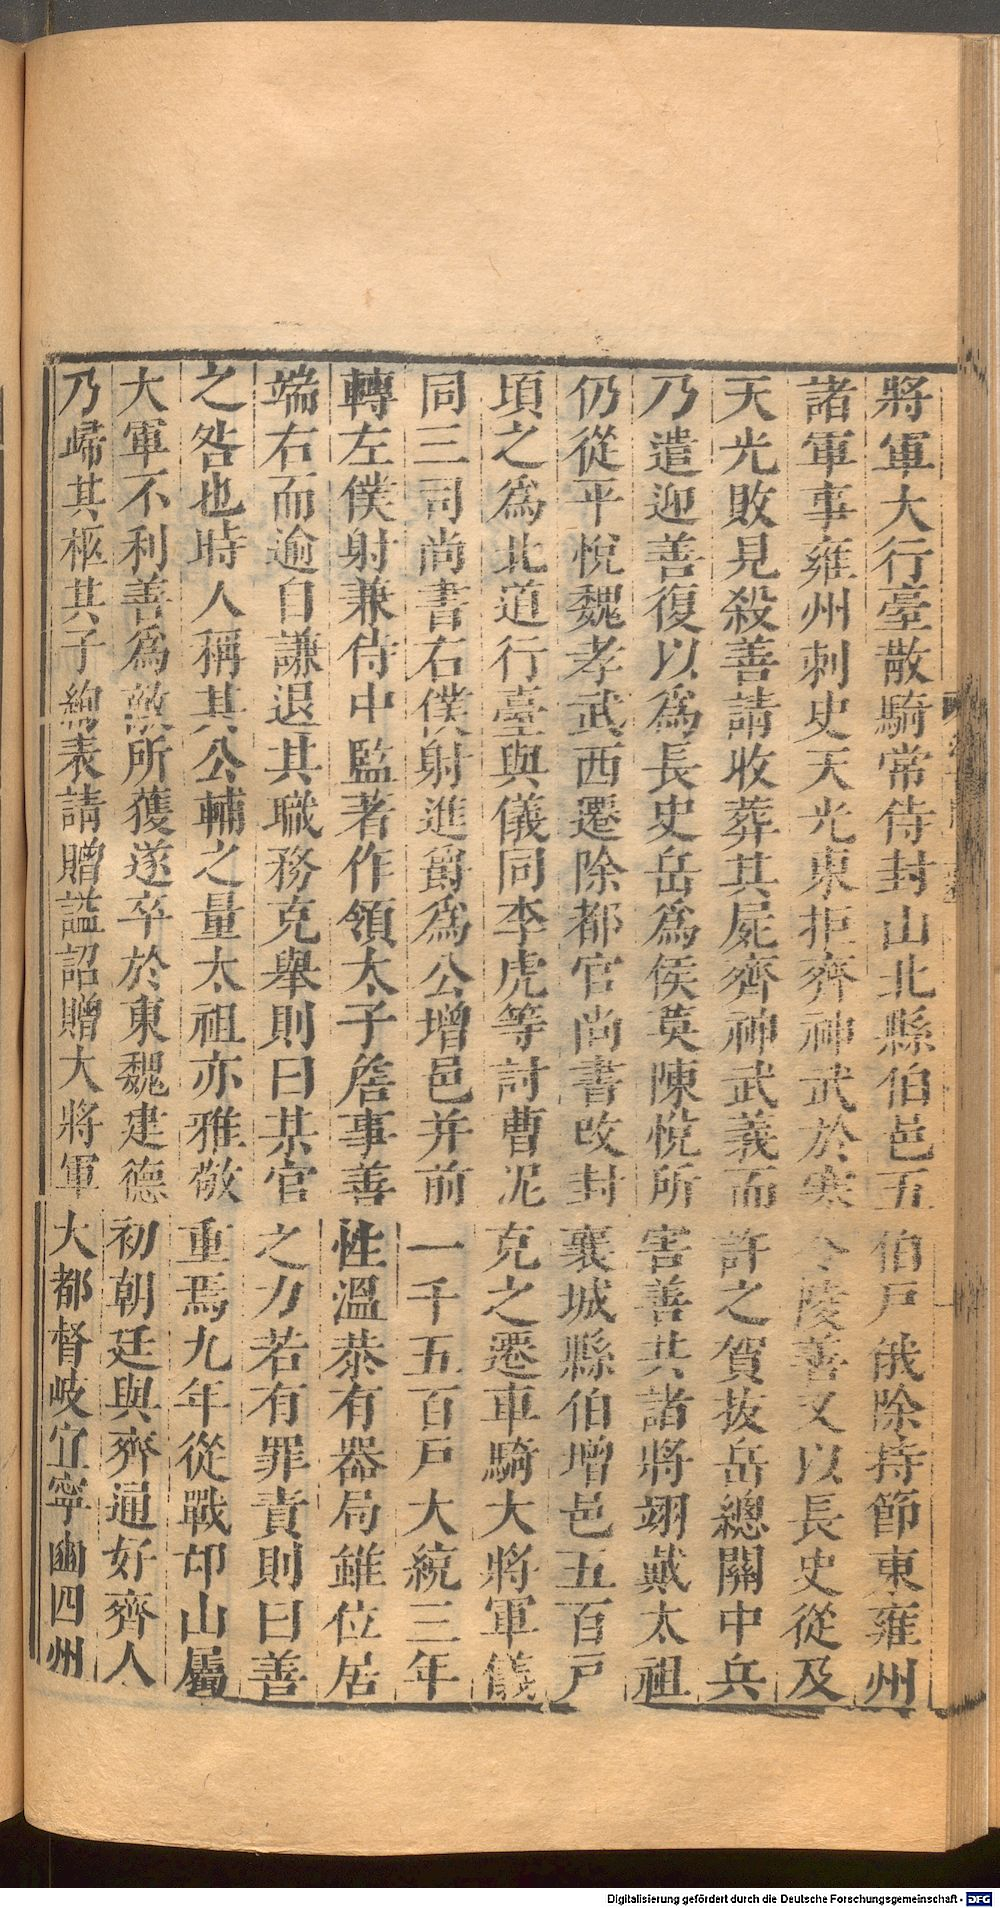 將軍大行臺散騎常侍封山北縣伯邑五伯戶俄除持節東雍州
諸軍事雍州刺史天光東拒齊神武於寒陵善又以長史從及
天光敗見殺善請收葬其屍齊神武義而許之賀拔岳總關中兵
乃遣迎善復以爲長史岳爲侯莫陳悅所害善共諸將翊戴太祖
仍從平悅魏孝武西遷除都官尚書改封襄城縣伯增邑五百戶
頃之爲北道行臺與儀同李虎等討曹泥克之遷車騎大將軍儀
同三司尚書右僕射進爵爲公增邑并前一千五百戶大統三年
轉左僕射兼侍中監著作領太子詹事善性溫恭有器局雖位居
端右而逾自謙退其職務克舉則曰某官之力若有罪責則曰善
之咎也時人稱其公輔之量太祖亦雅敬重焉九年從戰邙山屬
大軍不利善爲敵所獲遂卒於東魏建德初朝廷與齊通好齊人
乃歸其柩其子絢表請贈諡詔贈大將軍大都督岐宜寧豳四州
Digitalisierung gefördert durch die Deutsche Forschungsgemeinschaft - DFG